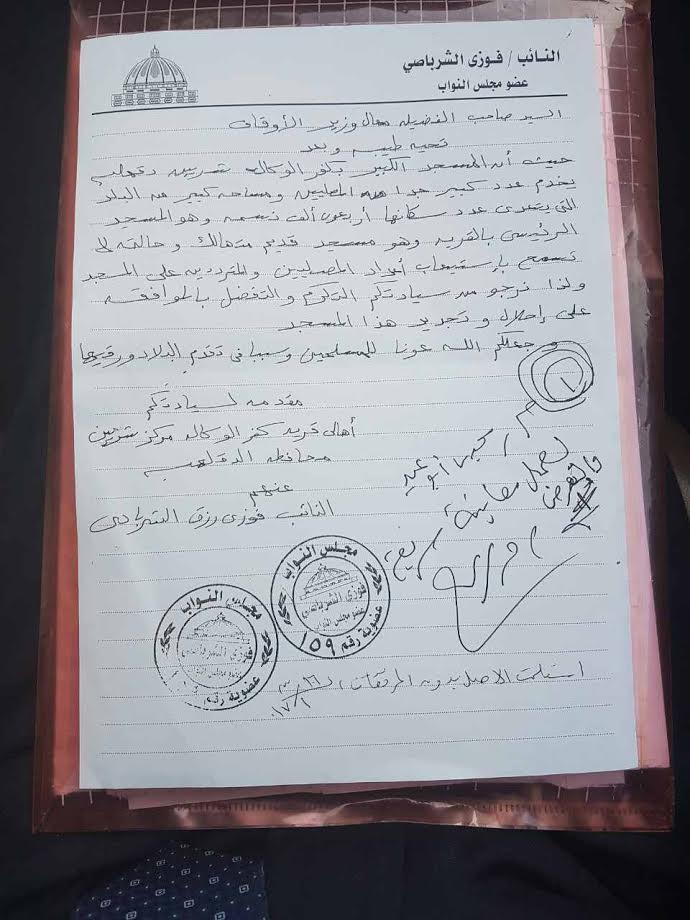 النائب / فوزى الشرباصي
عضو مجلس النواب
السيد صاحب الفضيله معالى وزير الأوقاف
تحيه طيبه وبعد
حيث أن المسجد الكبير بكفر الوكاله شربين دقهليه
يخدم عدد كبير جدا من المصلين ومساحه كبير من البلد
التى يتعدى عدد سكانها أربعون ألف نسمه وهو المسجد
الرئيسى بالقريه وهو مسجد قديم متهالك وحالته لا
تسمح بإستيعاب أعداد المصليين والمترددين على المسجد
ولذا نرجو من سيادتكم التكرم والتفضل بالموافقه
على إحلال وتجديد هذا المسجد
وجعلكم الله عونا للمسلمين وسببا فى تقدم البلاد ورقيها
مقدمه لسيادتكم
أهالى قريه كفر الوكاله مركز شربين
محافظه الدقهليه
عنهم
النائب فوزى رزق الشرباصى
لعمل معاينة
والعرض
مجلس النواب
فوزى الشرباصى
عضو مجلس النواب
عضوية رقم ١٥٩
مجلس النواب
فوزى الشرباصى
عضو مجلس النواب
عضوية رقم
استلمت الاصل بدون المرفقات